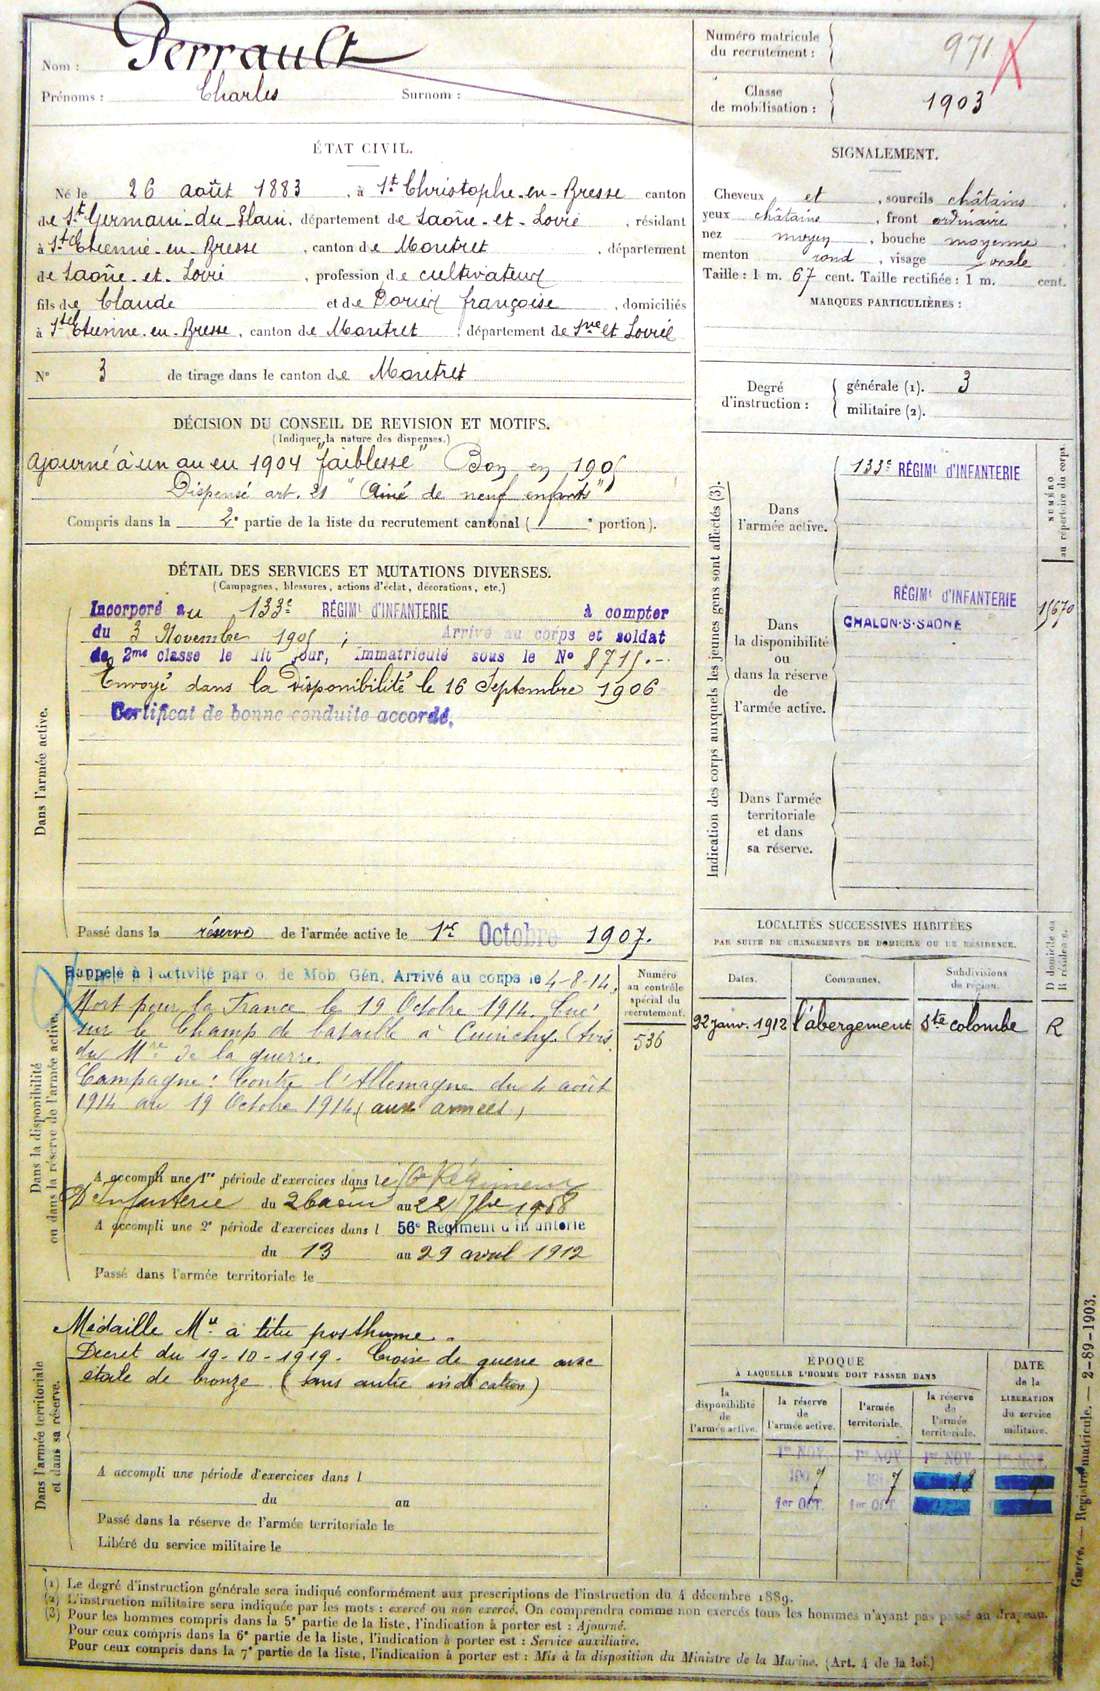 Nom : Perrault
Prénoms : Charles Surnom :
Numéro matricule du recrutement : 971
Classe de mobilisation : 1903
ÉTAT CIVIL.
Né le 26 août 1883, à St Christophe-en-Bresse canton
de St Germain-du-Plain, département de Saône-et-Loire, résidant
à St Etienne-en-Bresse, canton de Montret, département
de Saône-et-Loire, profession de cultivateur
fils de Claude et de Françoise, domiciliés
à St Etienne-en-Bresse, canton de Montret, département de Sne et Loire
N° 3 de tirage dans le canton de Montret
SIGNALEMENT.
Cheveux et, sourcils châtains,
yeux châtains, front ordinaire,
nez moyen, bouche moyenne,
menton rond, visage ovale
Taille : 1 m. 67 cent. Taille rectifiée : 1 m. cent.
MARQUES PARTICULIÈRES :
Degré d'instruction : générale (1). 3
militaire (2).
DÉCISION DU CONSEIL DE REVISION ET MOTIFS.
(Indiquer la nature des dispenses.)
Ajourné à un an en 1904 "faiblesse" Bon en 1905
Dispensé art. 21 "Ainé de neuf enfants"
Compris dans la 2e partie de la liste du recrutement cantonal ( e portion).
DÉTAIL DES SERVICES ET MUTATIONS DIVERSES.
(Campagnes, blessures, actions d'éclat, décorations, etc.)
Dans l'armée active.
Incorporé au 133e RÉGIMt D'INFANTERIE à compter
du 3 Novembre 1905 ; Arrivé au corps et soldat
de 2me classe le dit jour, Immatriculé sous le N° 8715.
Envoyé dans la disponibilité le 16 Septembre 1906
Certificat de bonne conduite accordé.
Passé dans la réserve de l'armée active le 1er Octobre 1907.
Indication des corps auxquels les jeunes gens sont affectés (3).
NUMÉRO au répertoire du corps.
Dans l'armée active.
133e RÉGIMt D'INFANTERIE
Dans la disponibilité ou dans la réserve de l'armée active.
RÉGIMt D'INFANTERIE
CHALON-S-SAONE
Dans l'armée territoriale et dans sa réserve.
Dans la disponibilité ou dans la réserve de l'armée active.
Rappelé à l'activité par o. de Mob. Gén. Arrivé au corps le 4-8-14.
Mort pour la France le 19 Octobre 1914. Tué
sur le Champ de bataille à Cuinchy. (Avis
du Mre de la guerre.
Campagne : Contre l'Allemagne du 4 août
1914 au 19 Octobre 1914 (aux armées)
Numéro au contrôle spécial du recrutement.
536
A accompli une 1re période d'exercices dans le Régiment
D'Infanterie du 26 août au 22 7bre 1908
A accompli une 2e période d'exercices dans l 56e Régiment d'Infanterie
du 13 au 29 avril 1912
Passé dans l'armée territoriale le
LOCALITÉS SUCCESSIVES HABITÉES
PAR SUITE DE CHANGEMENTS DE DOMICILE OU DE RÉSIDENCE.
Dates. Communes. Subdivisions de région. D domicile ou R résidence.
22 janv. 1912 l'abergement Ste colombe R
Dans l'armée territoriale et dans sa réserve.
Médaille Mre à titre posthume.
Décret du 19-10-1919. Croix de guerre avec
étoile de bronze (sans autre indication)
A accompli une période d'exercices dans l
du au
Passé dans la réserve de l'armée territoriale le
Libéré du service militaire le
ÉPOQUE
A LAQUELLE L'HOMME DOIT PASSER DANS
la disponibilité de l'armée active. la réserve de l'armée active. l'armée territoriale. la réserve de l'armée territoriale. DATE de la LIBÉRATION du service militaire.
1er NOV. 1er NOV. 1er NOV. 1er NOV.
1907 1917
1er OCT. 1er OCT.
Guerre. — Registre matricule. — 2-89-1903.
(1) Le degré d'instruction générale sera indiqué conformément aux prescriptions de l'instruction du 4 décembre 1889.
(2) L'instruction militaire sera indiquée par les mots : exercé ou non exercé. On comprendra comme non exercés tous les hommes n'ayant pas passé au drapeau.
(3) Pour les hommes compris dans la 5e partie de la liste, l'indication à porter est : Ajourné.
Pour ceux compris dans la 6e partie de la liste, l'indication à porter est : Service auxiliaire.
Pour ceux compris dans la 7e partie de la liste, l'indication à porter est : Mis à la disposition du Ministre de la Marine. (Art. 4 de la loi.)